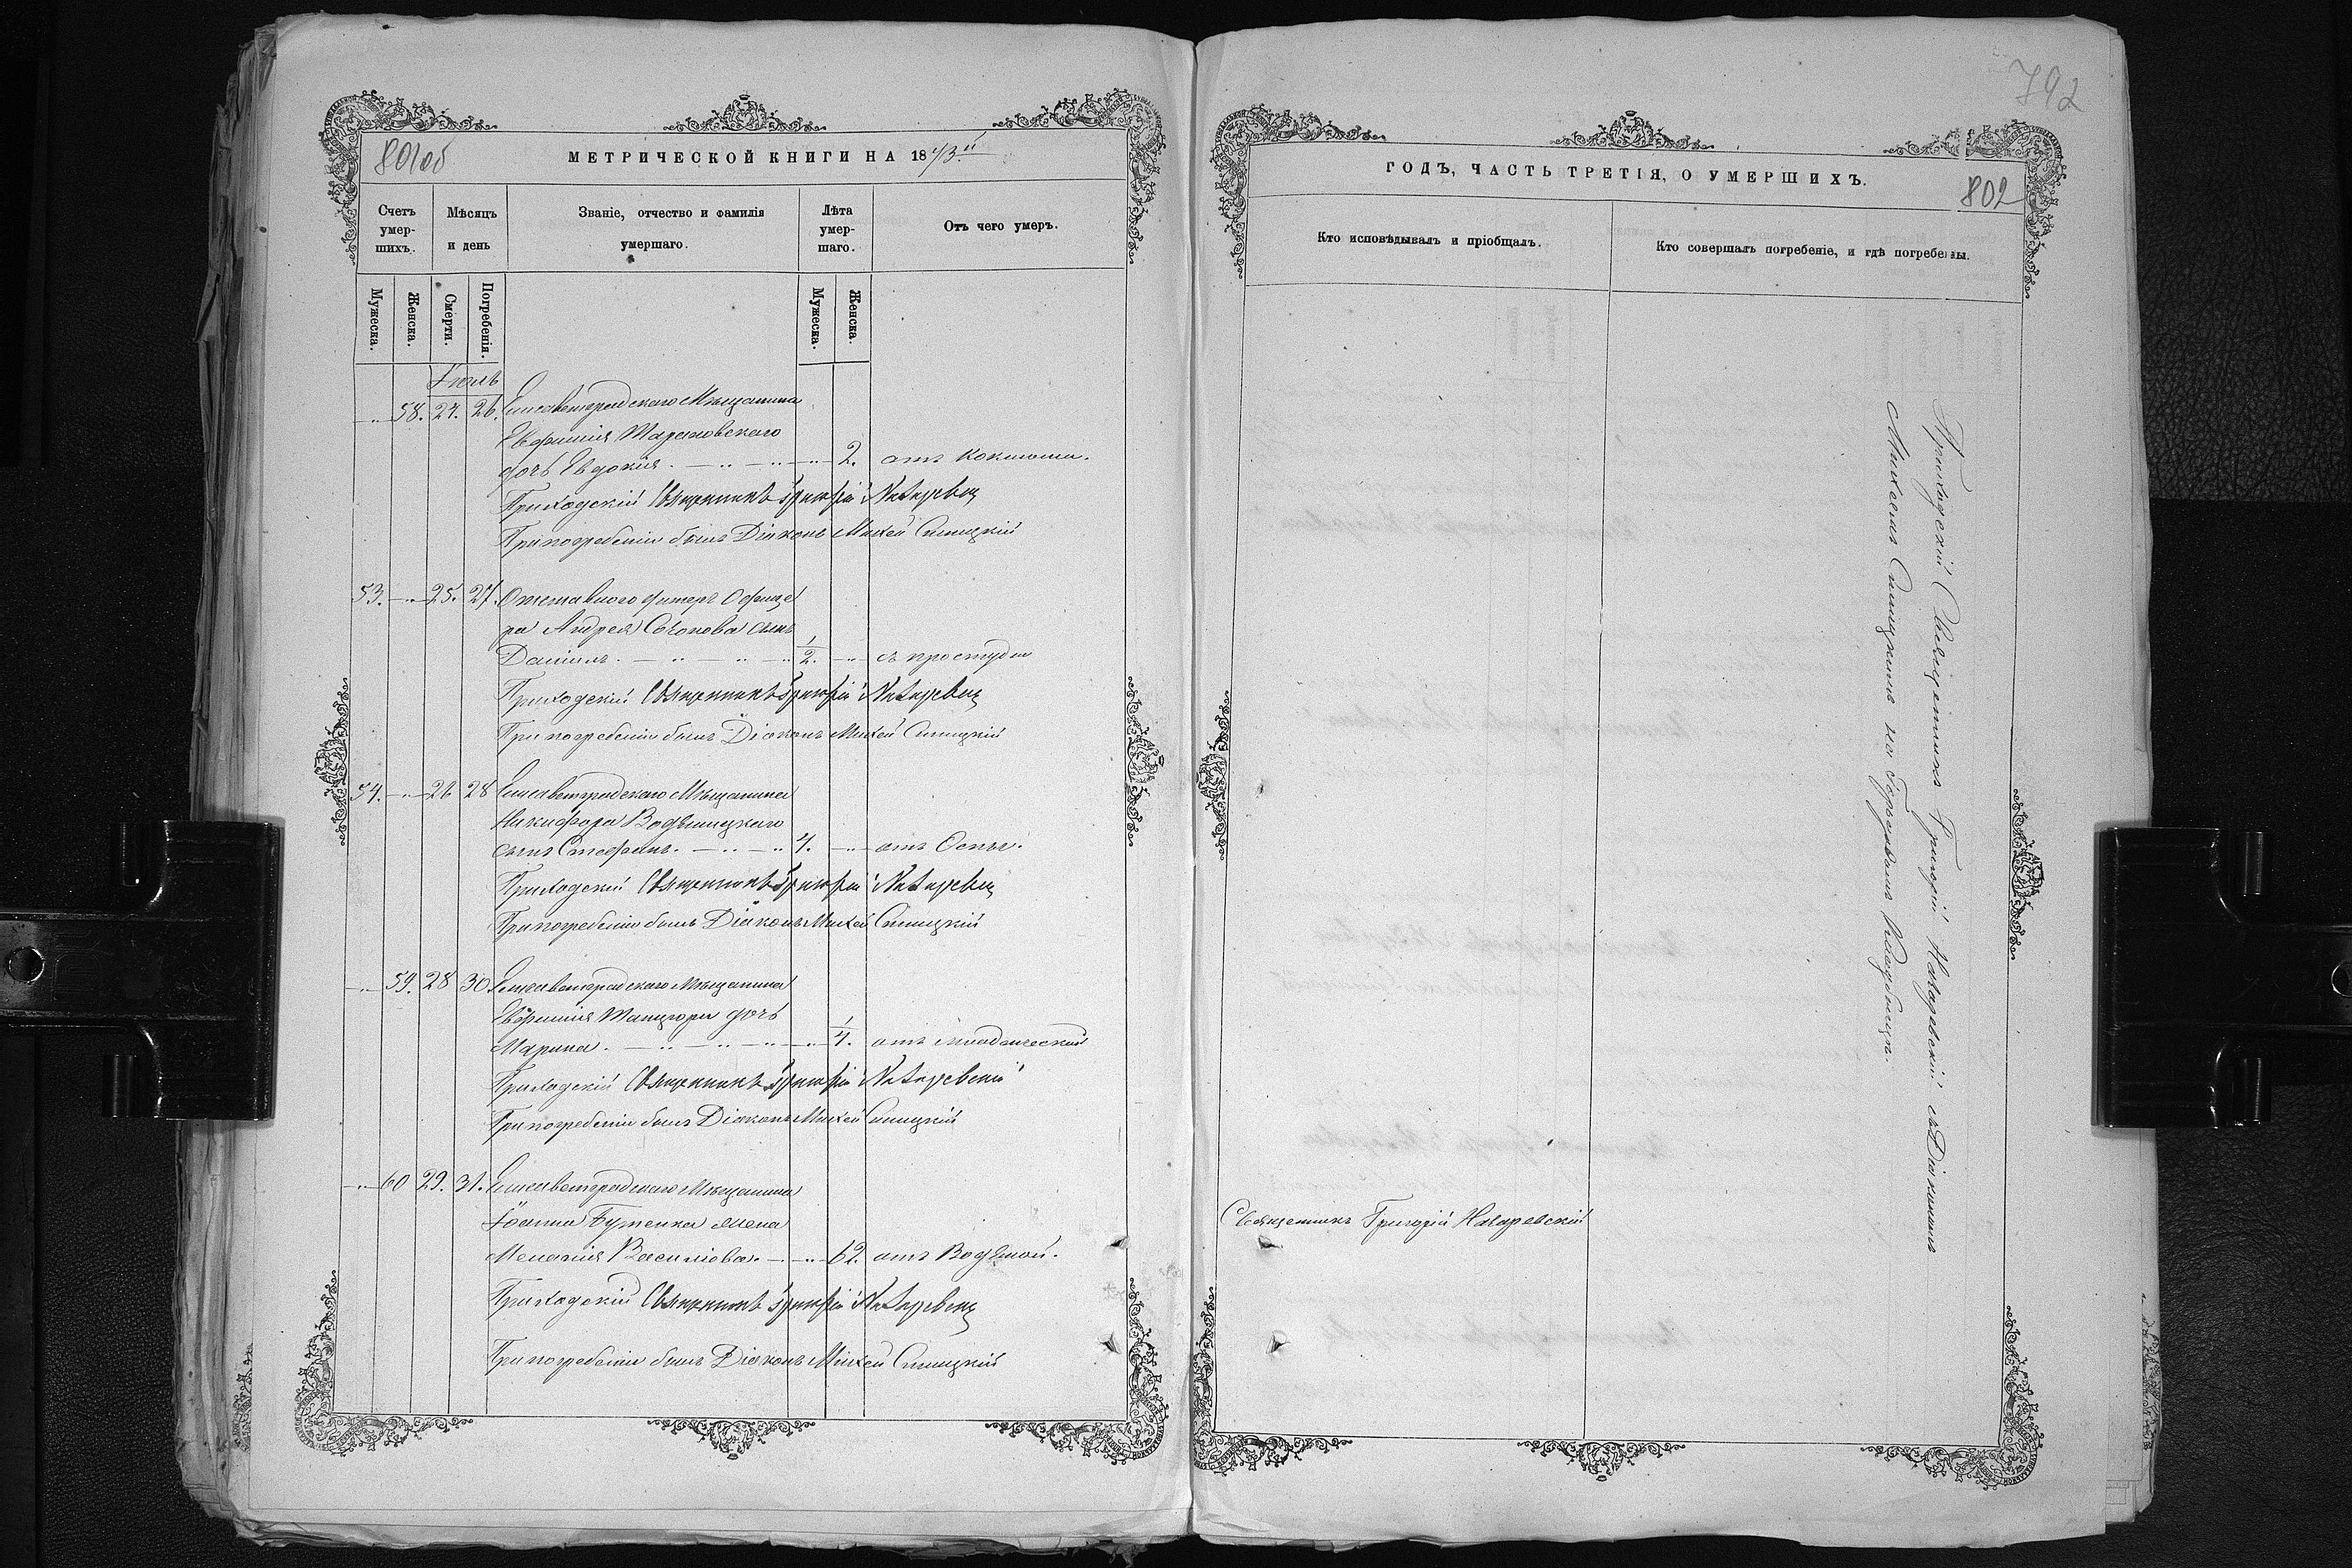 801об
МЕТРИЧЕСКОЙ КНИГИ НА 1873.й
Счетъ умер-шихъ.
Мѣсяцъ и день
Званіе, отчество и фамилія умершаго.
Лѣта умер-шаго.
Отъ чего умеръ.
Мужеска.
Женска.
Смерти.
Погребенія.
Мужеска.
Женска.
Іюль
58. 24. 26. Елисаветградскаго Мѣщанина
Евфимія
дочь Евдокія. 2. отъ Коклюша.
Приходскій Священникъ Григорій Назаревскій
При погребеніи былъ Діаконъ Михей Синицкій
53. 25. 27. Отставного Унтеръ Офице
ра Андрея сынъ
Даніилъ. 1/2. съ простуды
Приходскій Священникъ Григорій Назаревскій
При погребеніи былъ Діаконъ Михей Синицкій
54. 26 28 Елисаветградскаго Мѣщанина
Никифора Водяницкаго
сынъ Стефанъ. 4. отъ Оспы.
Приходскій Священникъ Григорій Назаревскій
При погребеніи былъ Діаконъ Михей Синицкій
59. 28 30. Елисаветградскаго Мѣщанина
Евфимія дочь
Марина. 1/4. отъ младенческой
Приходскій Священникъ Григорій Назаревскій
При погребеніи былъ Діаконъ Михей Синицкій
60 29. 31. Елисаветградскаго Мѣщанина
Іоанна Бутенка жена
Меланія Василіова. 62. отъ Водяной.
Приходскій Священникъ Григорій Назаревскій
При погребеніи былъ Діаконъ Михей Синицкій
792
ГОДЪ, ЧАСТЬ ТРЕТІЯ, О УМЕРШИХЪ.
802
Кто исповѣдывалъ и пріобщалъ.
Кто совершалъ погребеніе, и гдѣ погребены.
Приходскій Священникъ Григорій Назаревскій съ Діакономъ
Михеемъ Синицкимъ на Городскомъ Кладбищѣ.
Священникъ Григорій Назаревскій